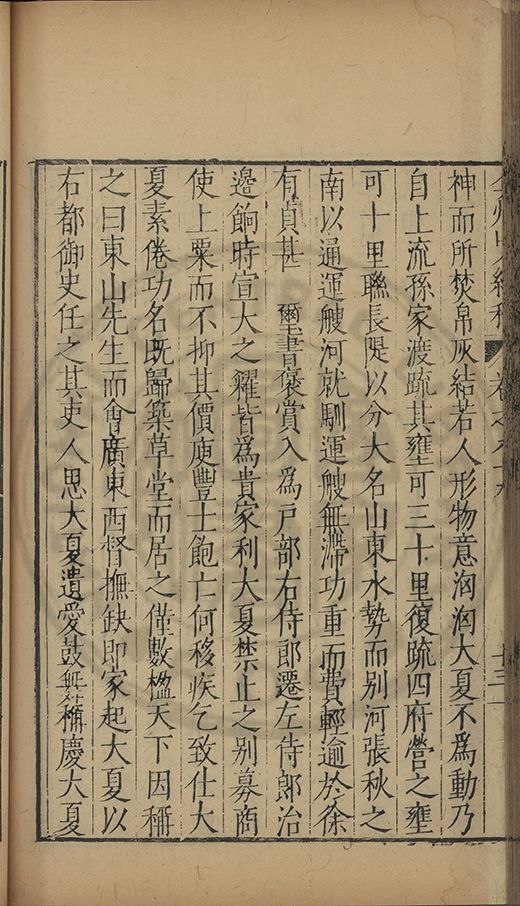 神而所焚帛灰結若人形物意洶洶大夏不爲動乃
自上流孫家渡疏其壅可三十里復疏四府營之壅
可十里聯長隄以分大名山東水勢而别河張秋之
南以通運艘河就馴運艘無滯功重而費輕逾於徐
有貞甚 璽書褒賞入爲戸部右侍郎遷左侍郎治
邊餉時宣大之糴皆爲貴家利大夏禁止之别募商
使上粟而不抑其價庾豐士飽亡何移疾乞致仕大
夏素倦功名既歸築草堂而居之僅數楹天下因稱
之曰東山先生而會廣東西督撫缺即家起大夏以
右都御史任之其吏人思大夏遺愛鼓舞稱慶大夏